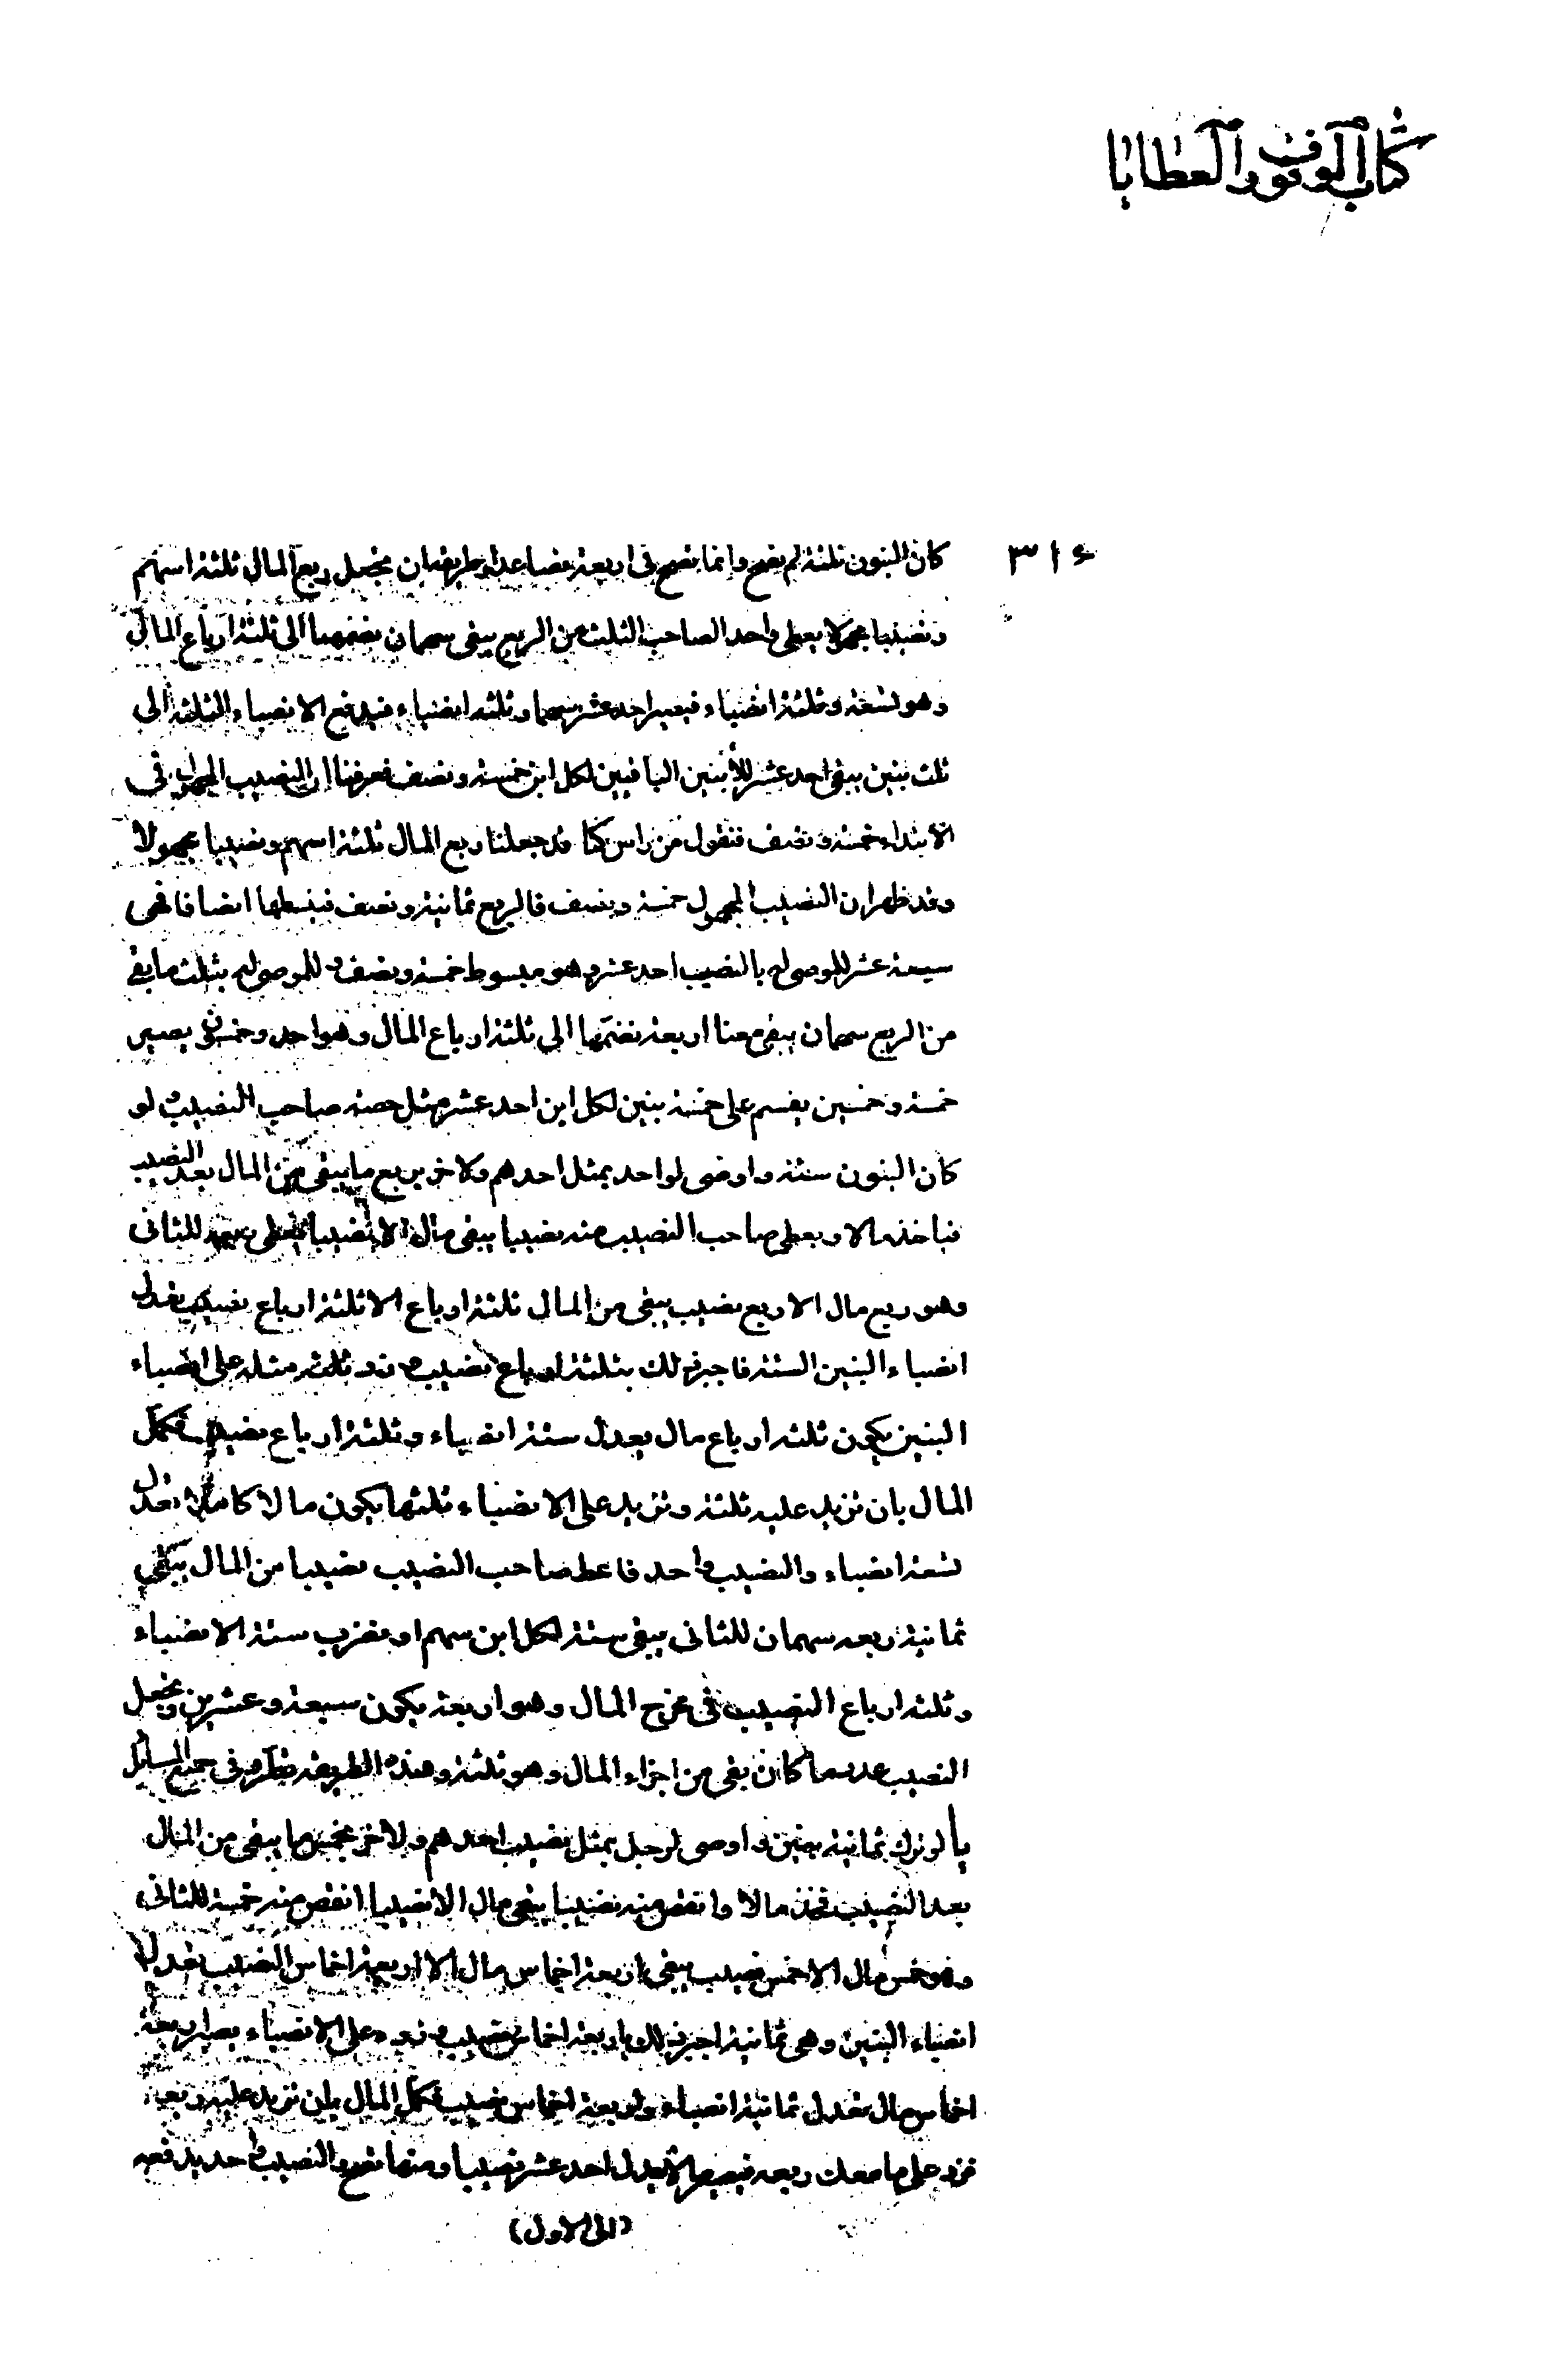 كتاب الوقوف والعطايا
٣١٤
كان البنون ثلثة لم يصح وانما يصح فى اربعة فصاعدا وطريقه ان تجعل ربع المال ثلثة اسهم
ونصيبا مجهولا يعطى واحد الصاحب الثلث من الربع يبقى سهمان نضمهما الى ثلثة ارباع المال
وهو تسعة وثلثة انصباء فيصير احد عشر سهما وثلثه انصباء فيدفع الانصباء الثلثة الى
ثلث بنين يبقى احد عشر للأبنين الباقيين لكل ابن خمسة ونصف فعرفنا ان النصيب المجهول فى
الابتداء خمسة ونصف فنقول من راس كنا قد جعلنا ربع المال ثلثة اسهم ونصيبا مجهولا
وقد ظهر ان النصيب المجهول خمسة ونصف فالربع ثمانية ونصف فنبسطها انصافا فهى
سبعة عشر للموصى له بالنصيب احد عشر وهو مبسوط خمسة ونصف وللموصى له بثلث ما بقى
من الربع سهمان يبقى معنا اربعة نضمها الى ثلثة ارباع المال وهو احد وخمسون يصير
خمسة وخمسين يقسم على خمسة بنين لكل ابن احد عشر مثل حصة صاحب النصيب لو
كان البنون ستة واوصى لواحد بمثل احدهم ولاخر بربع ما يبقى من المال بعد النصيب
فياخذ مالا ويعطى صاحب النصيب منه نصيبا يبقى مال الا نصيبا يعطى ربعه للثانى
وهو ربع مال الا ربع نصيب يبقى من المال ثلثة ارباع الا ثلثة ارباع نصيب يعدل
انصباء البنين الستة فاجبر ذلك بثلثة ارباع نصيب وزد ثلثه مثله على انصباء
البنين يكون ثلثه ارباع مال يعدل ستة انصباء وثلثة ارباع نصيب فكمل
المال بان تزيد عليه ثلثة وتزيد على الانصباء ثلثها يكون مالا كاملا يعدل
تسعة انصباء والنصيب واحد فاعط صاحب النصيب نصيبا من المال يبقى
ثمانية ربعه سهمان للثانى يبقى ستة لكل ابن سهم او نضرب ستة الانصباء
وثلثه ارباع النصيب فى مخرج المال وهو اربعة يكون سبعة وعشرين وتجعل
النصيب عدد ما كان بقى من اجزاء المال وهو ثلثة وهذه الطريقة تطرد فى جميع المسائل
يأ لو ترك ثمانية بنين واوصى لرجل بمثل نصيب احدهم ولاخر بخمس ما يبقى من المال
بعد النصيب فخذ مالا وانقص منه نصيبا يبقى مال الا نصيبا انقص منه خمسة للثانى
وهو خمس مال الا خمس نصيب يبقى اربعة اخماس مال الا اربعة اخماس النصيب تعدل
انصباء البنين وهى ثمانية اجبر ذلك باربعة اخماس نصيب وزده على الانصباء يصير اربعة
اخماس مال تعدل ثمانية انصباء واربعة اخماس نصيب فكمل المال بان تزيد عليه ربعه
فزد على ما معك ربعه فيصير مالا يعدل احد عشر نصيبا ومنها تصح والنصيب واحد يدفعه
(الى الاول)